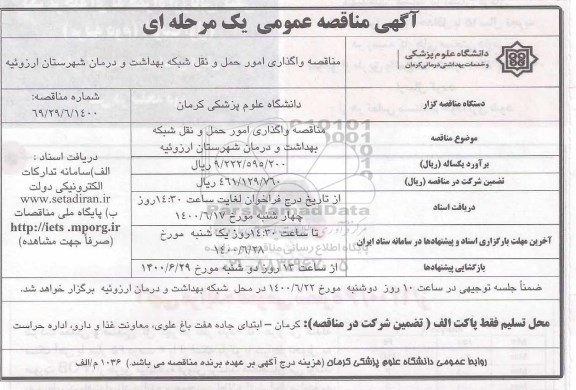 آگهی مناقصه عمومی یک مرحله ای
دانشگاه علوم پزشکی
و خدمات بهداشتی درمانی کرمان
مناقصه واگذاری امور حمل و نقل شبکه بهداشت و درمان شهرستان ارزوئیه
دستگاه مناقصه گزار
دانشگاه علوم پزشکی کرمان
شماره مناقصه:
۶۹/۲۹/۶/۱۴۰۰
موضوع مناقصه
مناقصه واگذاری امور حمل و نقل شبکه
بهداشت و درمان شهرستان ارزوئیه
برآورد یکساله (ریال)
۹/۲۲۲/۵۹۵/۲۰۰ ریال
تضمین شرکت در مناقصه (ریال)
۴۶۱/۱۲۹/۷۶۰ ریال
دریافت اسناد
از تاریخ درج فراخوان لغایت ساعت ۱۴:۳۰روز
چهار شنبه مورخ ۱۴۰۰/۶/۱۷
آخرین مهلت بارگزاری اسناد و پیشنهادها در سامانه ستاد ایران
تا ساعت ۱۴:۳۰روز یک شنبه مورخ
۱۴۰۰/۶/۲۸
بازگشایی پیشنهادها
از ساعت ۱۳ روز دو شنبه مورخ ۱۴۰۰/۶/۲۹
دریافت اسناد :
الف)سامانه تدارکات
الکترونیکی دولت
www.setadiran.ir
ب) پایگاه ملی مناقصات
http://iets .mporg.ir
(صرفاً جهت مشاهده)
ضمناً جلسه توجیهی در ساعت ۱۰ روز دوشنبه مورخ ۱۴۰۰/۶/۲۲ در محل شبکه بهداشت و درمان ارزوئیه برگزار خواهد شد.
محل تسلیم فقط پاکت الف ( تضمین شرکت در مناقصه): کرمان – ابتدای جاده هفت باغ علوی، معاونت غذا و دارو، اداره حراست
روابط عمومی دانشگاه علوم پزشکی کرمان (هزینه درج آگهی بر عهده برنده مناقصه می باشد.) ۱۰۳۶ م/الف
ParsNamadData